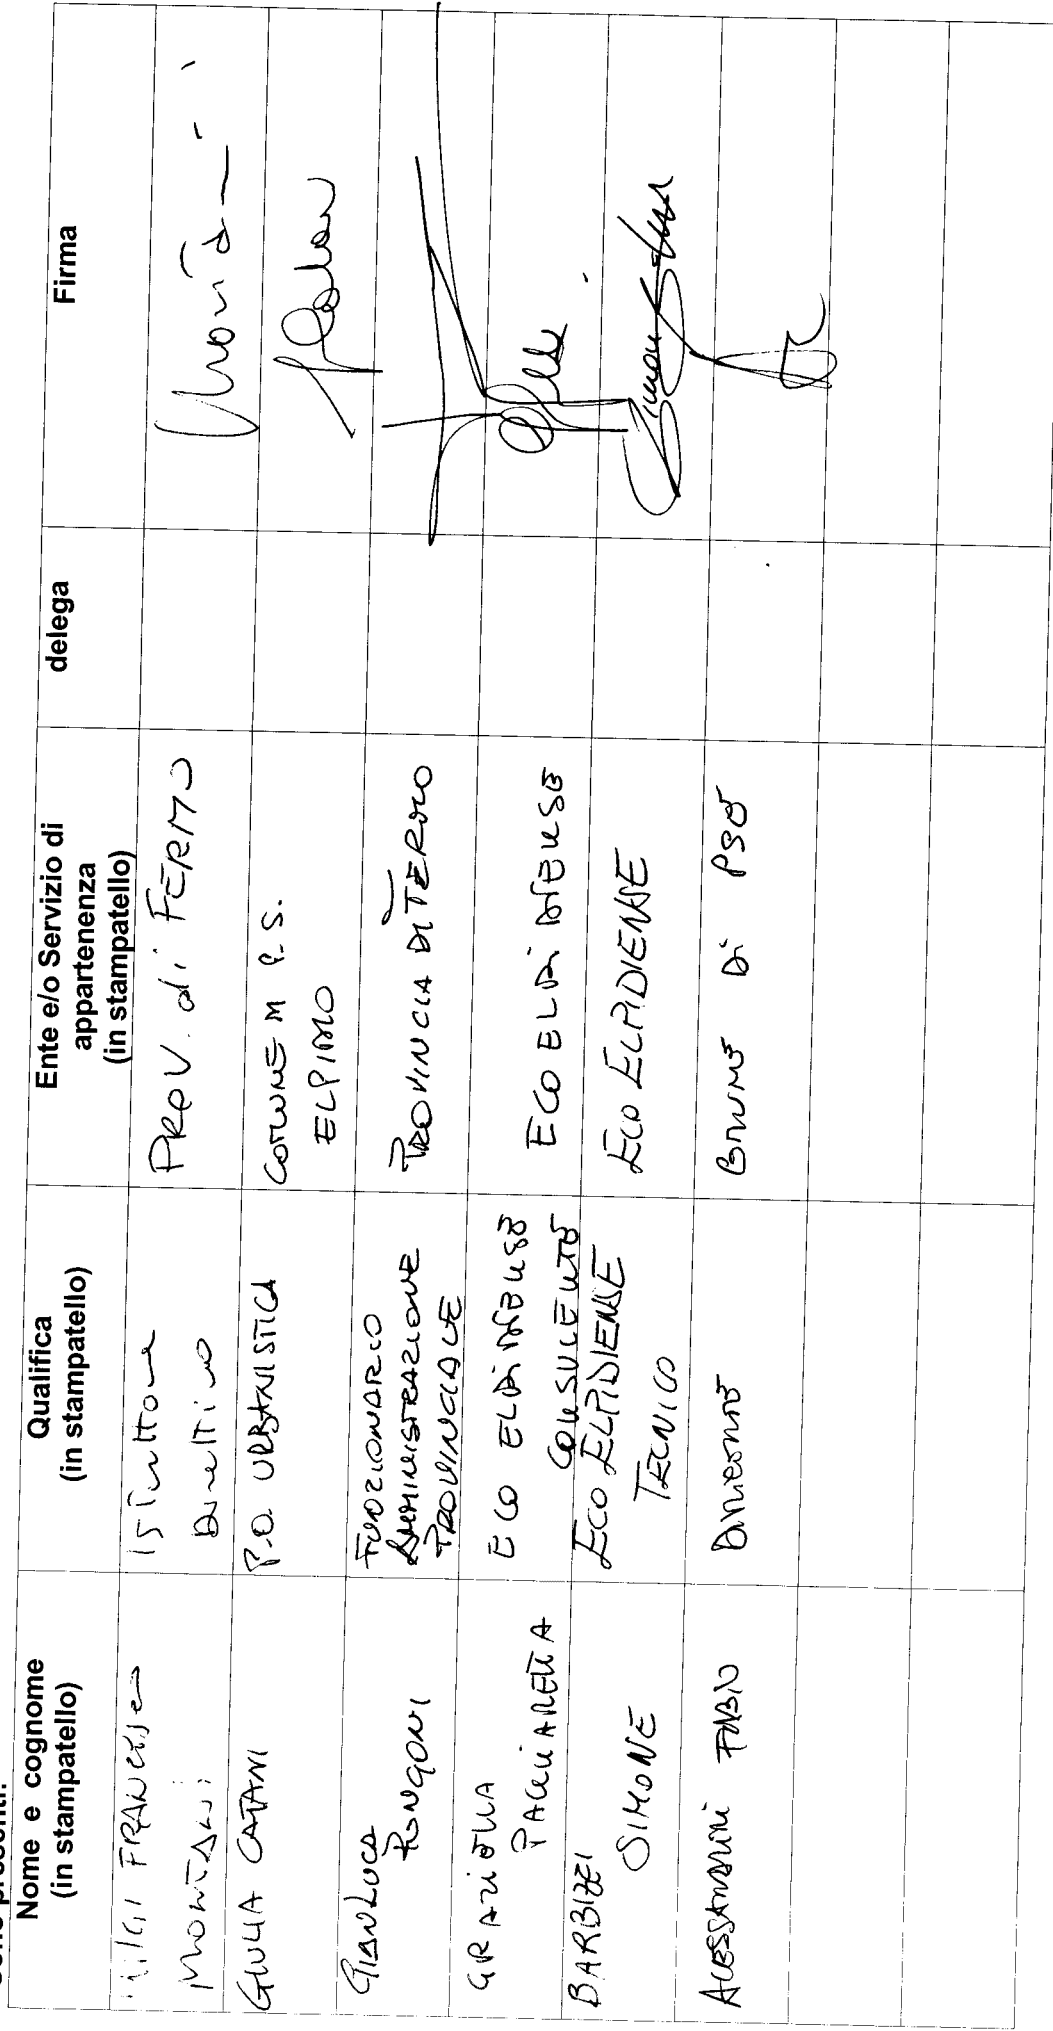 Sono presenti:
Nome e cognome
(in stampatello)
Qualifica
(in stampatello)
Ente e/o Servizio di
appartenenza
(in stampatello)
delega
Firma
FRANCESCO
MONTANI
ISTRUTTORE
DIRETTIVO
PROV. di FERMO
GIULIA CATANI
P.O. URBANISTICA
COMUNE P.S.
ELPIDIO
GIANLUCA
RONGONI
FUNZIONARIO
AMMINISTRAZIONE
PROVINCIALE
PROVINCIA DI FERMO
GRAZIELLA
PACCIARELLA
ECO ELPIDIENSE
ECO ELPIDIENSE
BARBIZZI
SIMONE
CONSULENTE
ECO ELPIDIENSE
TECNICO
ECO ELPIDIENSE
ALESSANDRINI FABIO
BRUNO DI PSE